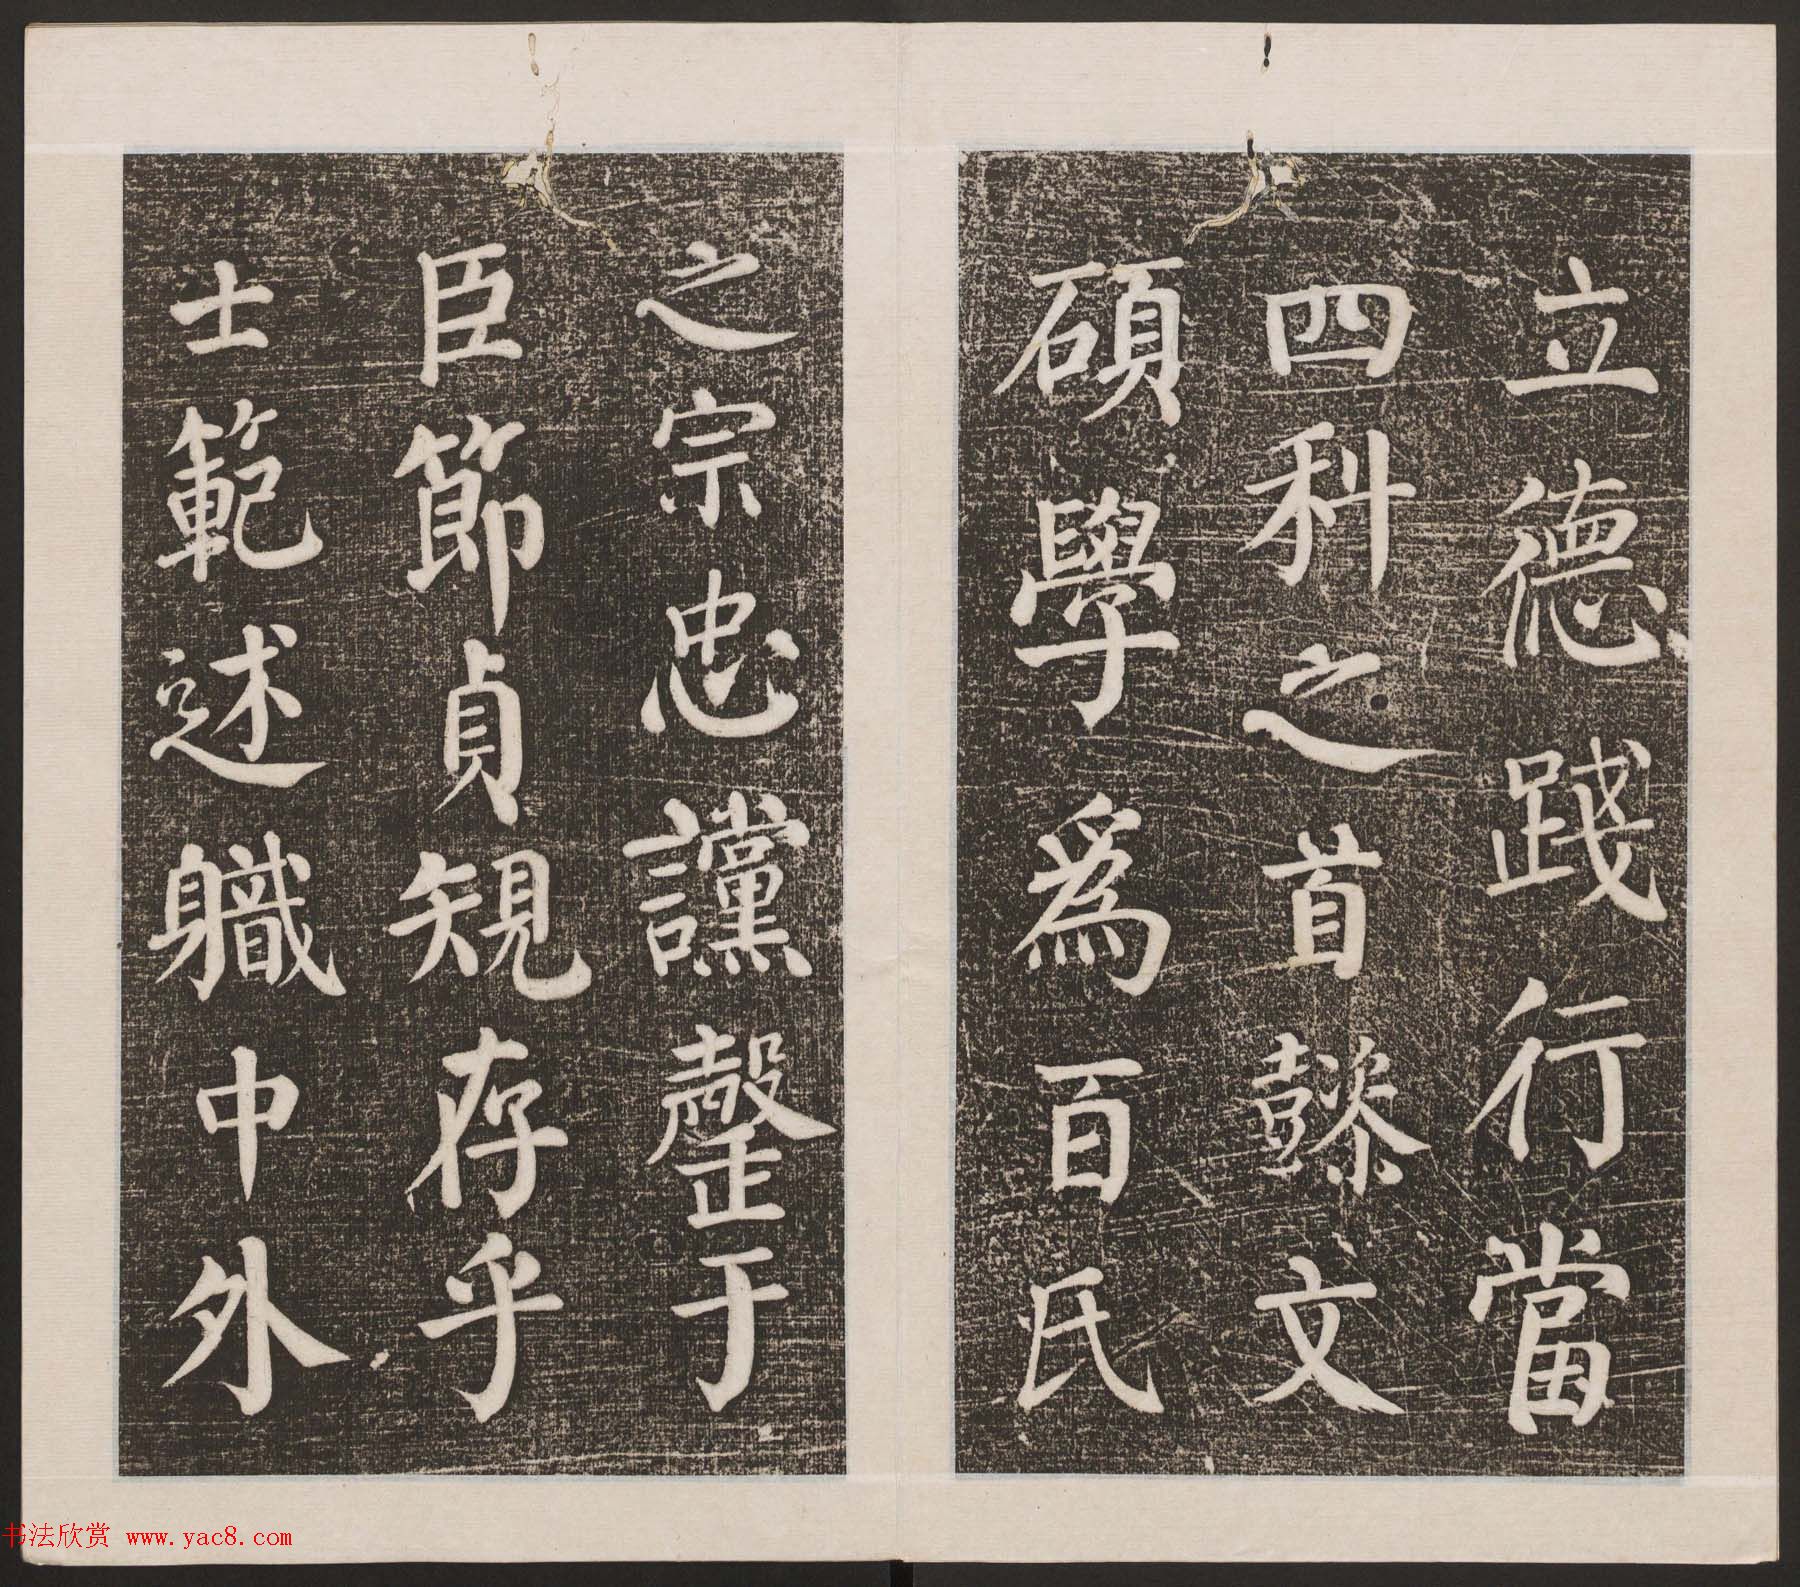 立德踐行當
四科之首懿文
碩學爲百氏
之宗忠讜罄于
臣節貞䂓存乎
士範述軄中外
书法欣赏 www.yac8.com